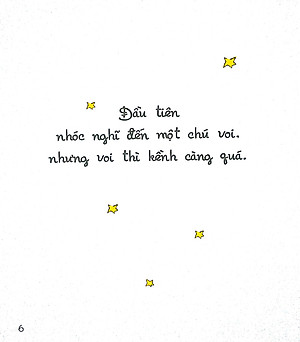 Đầu tiên
nhóc nghĩ đến một chú voi.
nhưng voi thì kềnh càng quá.
6